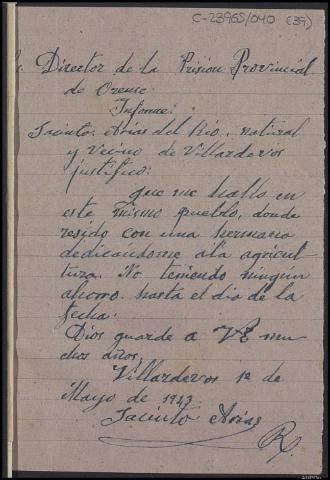 C-23965/040 (39)
Sr. Director de la Prision Provincial
de Orense.
Informe:
Jacinto Arias del Rio, natural
y Vecino de Villardevos
justifico:
que me hallo en
este mismo pueblo, donde
resido con una hermana
dedicandome a la agricul
tura. No teniendo ningún
ahorro hasta el dia de la
fecha.
Dios guarde a V mu
chos años,
Villardevos 1º de
Mayo de 1943
Jacinto Arias
R.